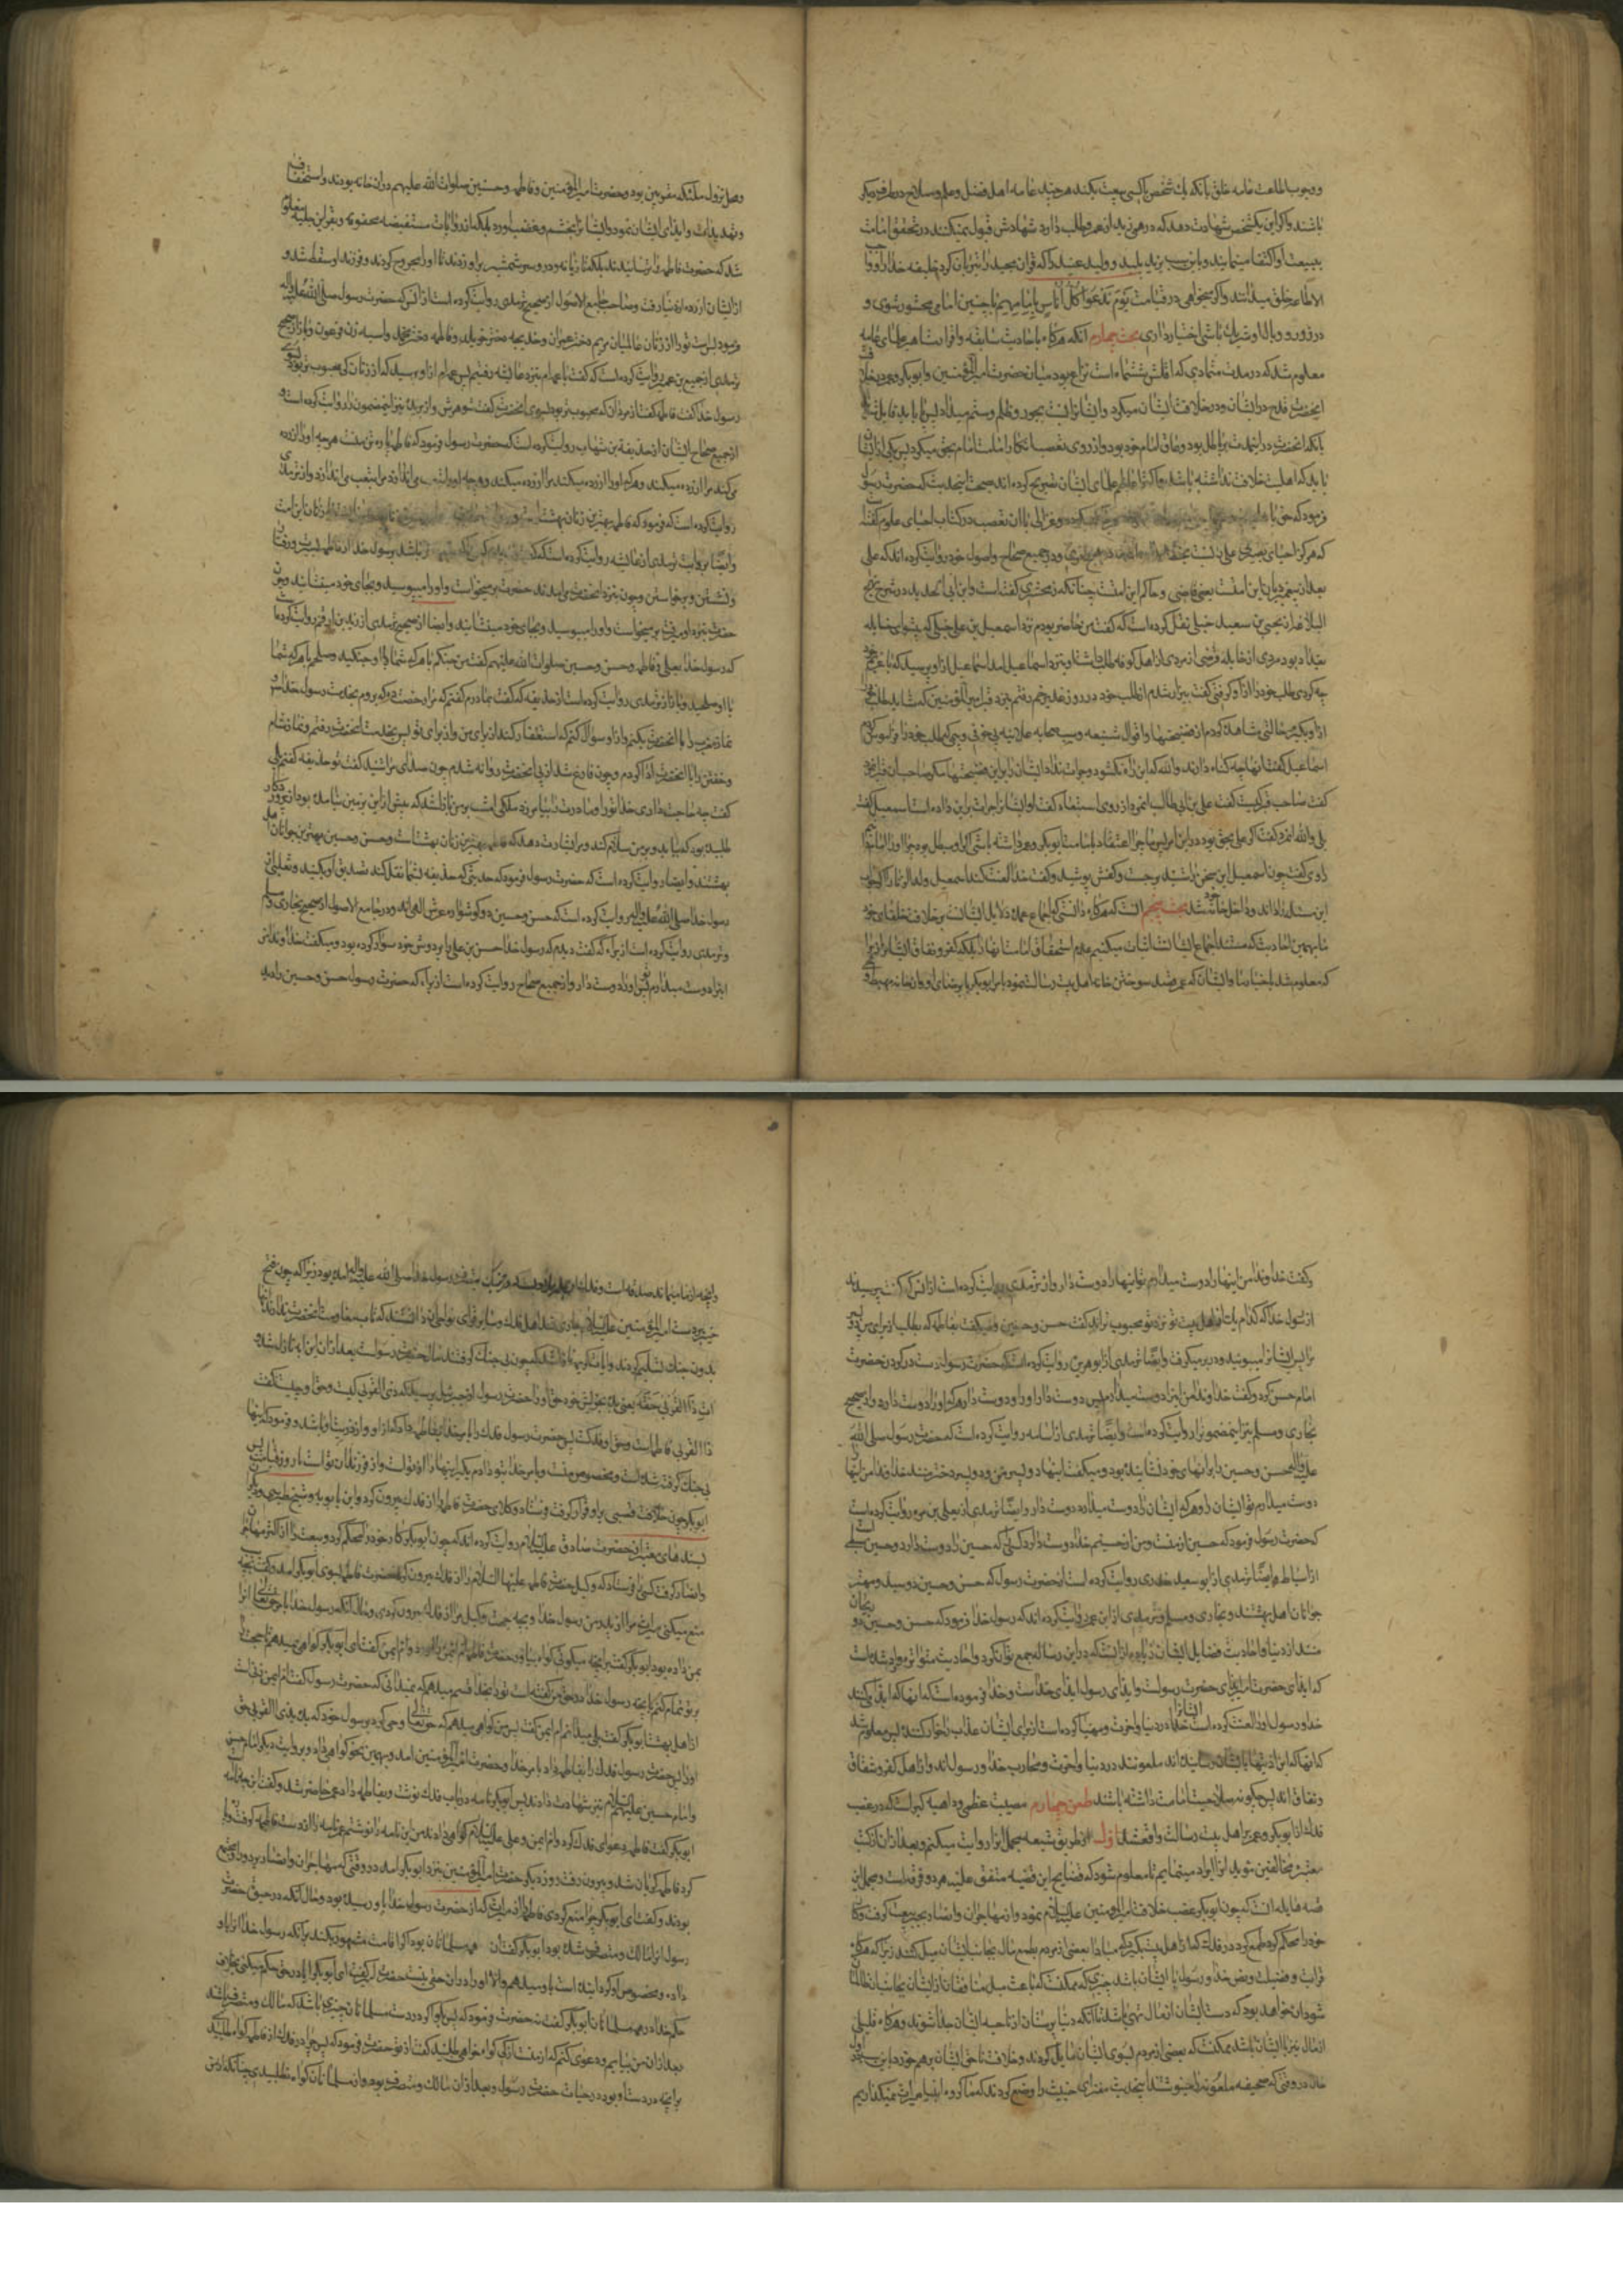 و وجوب اطاعت عامه خلق بآنکه یك شخص با کسی بیعت بکند هر چند عامه اهل فضل و علم و صلاح در طرف دیگر
باشند و اگر این یکشخص شهادت دهد که درهمی زید از عمرو طلب دارد شهادتش قبول نمیکنند و در تحقق امامت
ببیعت او اکتفا مینمایند و باین سبب یزید پلید و ولید عنید را که قرآن مجید را تیر باران کرد خلیفه خدا و واجب
الاطاعه خلق میدانند و اگر میخواهی در قیامت یَوْمَ نَدْعُوا كُلَّ أُنَاسٍ بِإِمَامِهِمْ با چنین امامی محشور شوی و
در زور و وبال او شریك باشی اختیار داری بحث چهارم آنکه هرگاه باحادیث سابقه و اقرار مشاهیر علمای عامه
معلوم شد که در مدت متمادی که اقلش ششماه است نزاع بود میان حضرت امیرالمؤمنین و ابوبکر و بودن
آنحضرت قدح در ایشان و در خلافت ایشان میکرد و ایشانرا نسبت بجور و ظلم و ستم میداد پس یا باید قایل شد
بآنکه آنحضرت در اینمدت بر باطل بود و عاق امام خود بود و از روی تعصب انکار امامت امام بحق میکرد پس یکی از ایشان
باید که اهلیت خلافت نداشته باشد و اکثر اعاظم علمای ایشان تصریح کرده‌اند بصحت اینحدیث که حضرت رسول
فرمود که حق با علی و غزالی با آن تعصب در کتاب احیای علوم گفته
که هرگز احدی نسبت بخطا و در جمیع صحاح و اصول خود روایت کرده‌اند که علی
بعد از پیغمبر دیان این امت یعنی قاضی و حاکم این امت چنانکه زمخشری گفته است و ابن ابی الحدید در شرح نهج
البلاغه از یحیی بن سعید حنبلی نقل کرده است که گفت من حاضر بودم نزد اسمعیل بن علی حنبلی که پیشوای حنابله
بغداد بود مردی از حنابله قرضی از مردی از اهل کوفه طلب داشت و بنزد اسماعیل آمد اسماعیل از او پرسید که با غریم خود
چه کردی طلب خود را از او گرفتی گفت بیزار شدم از طلب خود در روز غدیر خم رفتم بنزد قبر امیرالمؤمنین که شاید طلب خود
از او بگیرم حالتی مشاهده کردم از فضیحتها و اقوال شنیعه و سب صحابه علانیه بی خوف و بیمی که طلب خود را فراموش کردم
اسماعیل گفت آنها چه گناه دارند والله که این راه نگشود و جرأت نداد ایشان را بر این فضیحتها مگر صاحب آن قبر مرد
گفت صاحب قبر کیست گفت علی بن ابی طالب آنمرد از روی استبعاد گفت او ایشانرا جرأت بر این داده است اسمعیل گفت
بلی والله آنمرد گفت اگر علی بحق بوده در این امر پس ما چرا اعتقاد بامامت ابوبکر و عمر داشته باشیم اگر او مبطل بوده چرا او را امام دانیم
راوی گفت چون اسمعیل این سخن را شنید برجست و کفش پوشید و گفت خدا لعنت کند اسمعیل ولد الزنا را اگر جواب
این مسئله را داند و داخل خانه خود شد بحث پنجم آنست که هرگاه دانستی که اجماع عمده دلایل ایشانست بر خلافت خلفای خود
ما بهمین احادیث که مستند اجماع ایشانست اثبات میکنیم عدم استحقاق امامت آنها را بلکه کفر و نفاق ایشانرا زیرا
که معلوم شد باخبار ما و ایشان که عمر قصد سوختن خانه اهل بیت رسالت نمود بامر ابوبکر یا برضای او و آن خانه مهبط وحی
و محل نزول ملئکه مقربین بود و حضرت امیرالمؤمنین و فاطمه و حسنین صلوات الله علیهم در آن خانه بودند و استخفاف
و تهدیدات و ایذای ایشان نمود و ایشانرا بخشم و غضب آورد بلکه از روایات مستفیضه محفوفه و بقراین جلیه معلوم
شد که حضرت فاطمه را ترسانیدند بلکه تازیانه و در و سر شمشیر بر او زدند تا او را مجروح کردند و فرزند او سقط شد و
از ایشان آزرده از دنیا رفت و صاحب جامع الاصول از صحیح ترمذی روایت کرده است از انس که حضرت رسول صلی الله علیه و آله
فرمود بس است تو را از زنان عالمیان مریم دختر عمران و خدیجه دختر خویلد و فاطمه دختر محمد و آسیه زن فرعون و باز از صحیح
ترمذی از جمیع بن عمیر روایت کرده است که گفت با عمه‌ام بنزد عایشه رفتیم پس عمه‌ام از او پرسید که از زنان کی محبوب تر بود بسوی
رسول خدا گفت فاطمه گفت از مردان که محبوب تر بود بسوی آنحضرت گفت شوهرش و از بریده نیز اینمضمون را روایت کرده است و
از جمیع صحاح ایشان از حذیفه بن شهاب روایت کرده است که حضرت رسول فرمود که فاطمه پاره تن منست هر چه او را آزرده
میکند مرا آزرده میکند و هر که او را آزرده میکند مرا آزرده میکند و هر چه او را تعب می اندازد مرا بتعب می اندازد و از ترمذی
روایت کرده است که فرمود که فاطمه بهترین زنان بهشت است زنان این امت
و ایضا بروایت ترمذی از عایشه روایت کرده است که گفت باشد برسول خدا از فاطمه در رفتار
و نشستن و برخواستن و چون بنزد آنحضرت می‌آمدند حضرت بر میخواست و او را میبوسید و بجای خود مینشانید و چون
حضرت بنزد او میرفت بر میخواست و او را میبوسید و بجای خود مینشانید و ایضا از صحیح ترمذی از زید بن ارقم روایت کرده
که رسول خدا بعلی و فاطمه و حسن و حسین صلوات الله علیهم گفت من جنگم با هر که شما با او جنگید و صلحم با هر که شما
با او صلحید و باز از ترمذی روایت کرده است از حذیفه که گفت بمادرم گفتم که مرا رخصت ده که بروم بخدمت رسول خدا و
نماز مغرب را با آنحضرت بکنم و از او سؤال کنم که استغفار کند از برای من و از برای تو پس بخدمت آنحضرت رفتم و نماز شام
و خفتن را با آنحضرت ادا کردم و چون فارغ شد از پی آنحضرت روانه شدم چون صدای مرا شنید گفت تو حذیفه گفتم بلی
گفت چه حاجت داری خدا تو را و مادرت را بیامرزد ملکی امشب بر من نازل شد که پیش از این بزمین نیامده بود از پروردگار
طلبیده بود که بیاید و بر من سلام کند و مرا بشارت دهد که فاطمه بهترین زنان بهشتست و حسن و حسین بهترین جوانان اهل
بهشتند و ایضا روایت کرده است که حضرت رسول فرمود که حدیثی که حذیفه بشما نقل کند تصدیق او بکنید و ثعلبی از
رسول خدا صلی الله علیه و آله روایت کرده است که حسن و حسین دو گوشواره عرش الهی اند و در جامع الاصول از صحیح بخاری و مسلم
و ترمذی روایت کرده است از براء که گفت دیدم که رسول خدا حسن بن علی را بر دوش خود سوار کرده بود و میگفت خداوندا من
اینرا دوست میدارم تو نیز او را دوست دار و از جمیع صحاح روایت کرده است از براء که حضرت رسول حسن و حسین را دید
و گفت خداوندا من اینها را دوست میدارم تو اینها را دوست دار و از ترمذی روایت کرده است از انس که گفت پرسیدند
از رسول خدا که کدام یك از اهل بیت تو نزد تو محبوب تراند گفت حسن و حسین و میگفت بفاطمه که بطلب از برای من دو پسر
مرا پس ایشانرا میبوئید و در بر میگرفت و ایضا ترمذی از ابو هریره روایت کرده است که حضرت رسول دست در گردن حضرت
امام حسن کرد و گفت خداوندا من اینرا دوست میدارم پس دوست دار او را و دوست دار هر که او را دوست دارد و از صحیح
بخاری و مسلم نیز اینمضمون را روایت کرده است و ایضا ترمذی از اسامه روایت کرده است که حضرت رسول صلی الله
علیه و آله حسن و حسین را برانهای خود نشانیده بود و میگفت اینها دو پسر من و دو پسر دختر منند خداوندا من اینها
دوست میدارم تو ایشان را و هر که ایشان را دوست میدارد دوست دار و ایضا ترمذی از یعلی بن مره روایت کرده است
که حضرت رسول فرمود که حسین از منست و من از حسینم خدا دوست دارد کسی را که حسین را دوست دارد و حسین سبطی است
از اسباط و ایضا ترمذی از ابو سعید خدری روایت کرده است از حضرت رسول که حسن و حسین دو سید و مهتر
جوانان اهل بهشتند و بخاری و مسلم و ترمذی از ابن عمر روایت کرده اند که رسول خدا فرمود که حسن و حسین دو ریحان
منند از دنیا و احادیث فضایل ایشان زیاده از آنست که در این رساله جمع توان کرد و احادیث متواتره وارد شده است
که ایذای حضرت امیر ایذای حضرت رسولست و ایذای رسول ایذای خداست و خدا فرموده است که آنها که ایذا میکنند
خدا و رسول او را لعنت کرده است ایشانرا خدا در دنیا و آخرت و مهیا کرده است از برای ایشان عذاب خوار کننده پس معلوم شد
که آنها که این اذیتها بایشان رسانیده اند ملعونند در دنیا و آخرت و محارب خدا و رسول اند و از اهل کفر و شقاق
و نفاق اند پس چگونه صلاحیت امامت داشته باشند طعن چهارم مصیبت عظمی و داهیه کبری است که در غصب
فدك از ابوبکر و عمر بر اهل بیت رسالت واقع شد اول از طریق شیعه مجمل آنرا روایت میکنم و بعد از آن از کتب
معتبره مخالفین مؤید آنرا ایراد مینمایم تا معلوم شود که فضایح این قضیه متفق علیه هر دو فرقه است و مجمل این
قصه هایله آنست که چون ابوبکر غصب خلافت امیرالمؤمنین علیه السلام نمود و از مهاجران و انصار بجبر بیعت گرفت و کار
خود را محکم کرد طمع کرد در فدك که از اهل بیت بگیرد که مبادا بعضی از مردم بطمع مال بجانب ایشان میل کنند زیرا که هرگاه
قرابت و فضیلت و نص خدا و رسول با ایشان باشد چیزی که ممکنست که باعث میل منافقان از ایشان بجانب آن ظالمان
شود آن خواهد بود که دست ایشان از مال تهی باشد تا آنکه دنیا پرستان از ناحیه ایشان جدا شوند و هرگاه قلیلی
از مال نیز با ایشان باشد ممکنست که بعضی از مردم بسوی ایشان مایل گردند و خلافت ناحق ایشان برهم خورد و باین سبب اول
حال در وقتی که صحیفه ملعونه را مینوشتند اینحدیث مفترای خبیث را وضع کردند که ما گروه انبیا میراث نمیگذاریم
و آنچه از ما میماند صدقه است و فدك رسول خدا صلی الله علیه و آله آمده بود زیرا که چون فتح
خیبر بدست امیرالمؤمنین علیه السلام جاری شد اهل فدك و سایر قرای نواحی آن دانستند که تاب مقاومت آنحضرت ندارند آنها
بدون جنك تسلیم کردند و آیات کریمه نازل شد که چون بی جنك گرفته شد مال حضرت رسولست بعد از آن این آیه نازل شد
آت ذا القربی حقه یعنی بده بخویش خود حق او را حضرت رسول از جبرئیل پرسید که ذی القربی کیست و حق او چیست گفت
ذا القربی فاطمه است و حق او فدکست پس حضرت رسول فدك را بامر خدا بفاطمه داد که از او و از ذریت او باشد و فرمود که اینها
بی جنك گرفته شده است و مخصوص منست و بامر خدا بتو دادم بگیر اینها را از تو است و از فرزندان تو است تا روز قیامت پس
ابوبکر چون خلافت غصبی بر او قرار گرفت فرستاد و وکلای حضرت فاطمه را از فدك بیرون کرد و ابن بابویه و شیخ طبرسی و دیگران
بسندهای معتبر از حضرت صادق علیه السلام روایت کرده اند که چون ابوبکر کار خود را محکم کرد و بیعت را از اکثر مهاجران
و انصار گرفت کسی را فرستاد که وکیل حضرت فاطمه علیها السلام را از فدك بیرون کرد حضرت فاطمه بسوی ابوبکر آمد و گفت بچه سبب
منع میکنی میراث مرا از پدر من رسول خدا و بچه جهت وکیل مرا از فدك بیرون کردی و حال آنکه رسول خدا بامر حق تعالی آنرا
بمن داده بود ابوبکر گفت بر آنچه میگوئی گواه بیاور حضرت فاطمه ام ایمن را آورد و ام ایمن گفت ای ابوبکر گواهی نمیدهم تا حجت را
بر تو تمام کنم بآنچه رسول خدا در حق من گفته است تو را بخدا قسم میدهم که نمیدانی که حضرت رسول گفت ام ایمن زنی است
از اهل بهشت ابوبکر گفت بلی میدانم ام ایمن گفت پس من گواهی میدهم که حق تعالی وحی کرد برسول خود که بده بذی القربی حق
او را پس حضرت رسول فدك را بفاطمه داد بامر خدا و حضرت امیرالمؤمنین آمد و بهمین نحو گواهی داد و بروایت دیگر امام حسن
و امام حسین علیهم السلام نیز شهادت دادند پس ابوبکر نامه در باب فدك نوشت و بفاطمه داد عمر حاضر شد و گفت این چه نامه است
ابوبکر گفت فاطمه دعوای فدك کرد و ام ایمن و علی علیه السلام گواهی دادند من این نامه را نوشتم عمر نامه را از دست فاطمه گرفت و پاره
کرد فاطمه گریان شد و بیرون رفت و روز دیگر حضرت امیرالمؤمنین بنزد ابوبکر آمد در وقتی که مهاجران و انصار بر دور او جمع
بودند و گفت ای ابوبکر چرا منع کردی فاطمه را از میراثی که از حضرت رسول خدا باو رسیده بود و حال آنکه در حیات حضرت
رسول آنرا مالك و متصرف شده بود ابوبکر گفت آن همه مسلمانان بود اگر اقامت شهود بکند بر آنکه رسول خدا آنرا باو
داده و مخصوص او گردانیده است باو میدهم والا او را در آن حقی نیست حضرت امیر گفت ای ابوبکر آیا در حق حکم میکنی بخلاف
حکم خدا در همه مسلمانان ابوبکر گفت نه حضرت فرمود که پس بگو اگر در دست مسلمانان چیزی باشد که مالك و متصرف باشند
بعد از آن من بیایم و دعوی کنم که از منست از کی گواه خواهی طلبید گفت از تو حضرت فرمود که پس چرا در فدك از فاطمه گواه طلبیدی
بر آنچه در دست او بود در حیات حضرت رسول و بعد از آن مالك و متصرف بود و از مسلمانان گواه نطلبیدی چنانکه از من